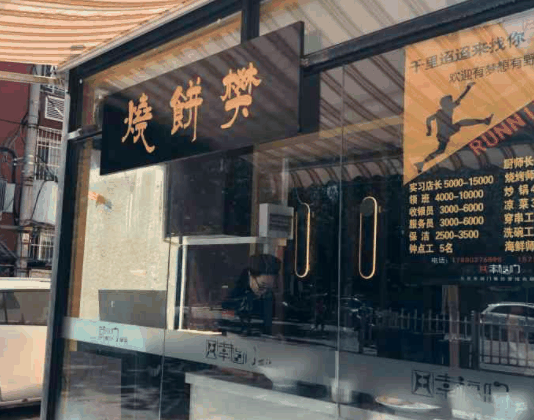 燒餅樊
千里迢迢来找你
欢迎有梦想有野
RUNNI
实习店长 5000-15000
领班 4000-10000
收银员 3000-6000
服务员 3000-6000
保洁 2500-3500
钟点工 5名
厨师长
烧烤师
炒锅 4
凉菜 3
穿串工
洗碗工
海鲜师
电话: